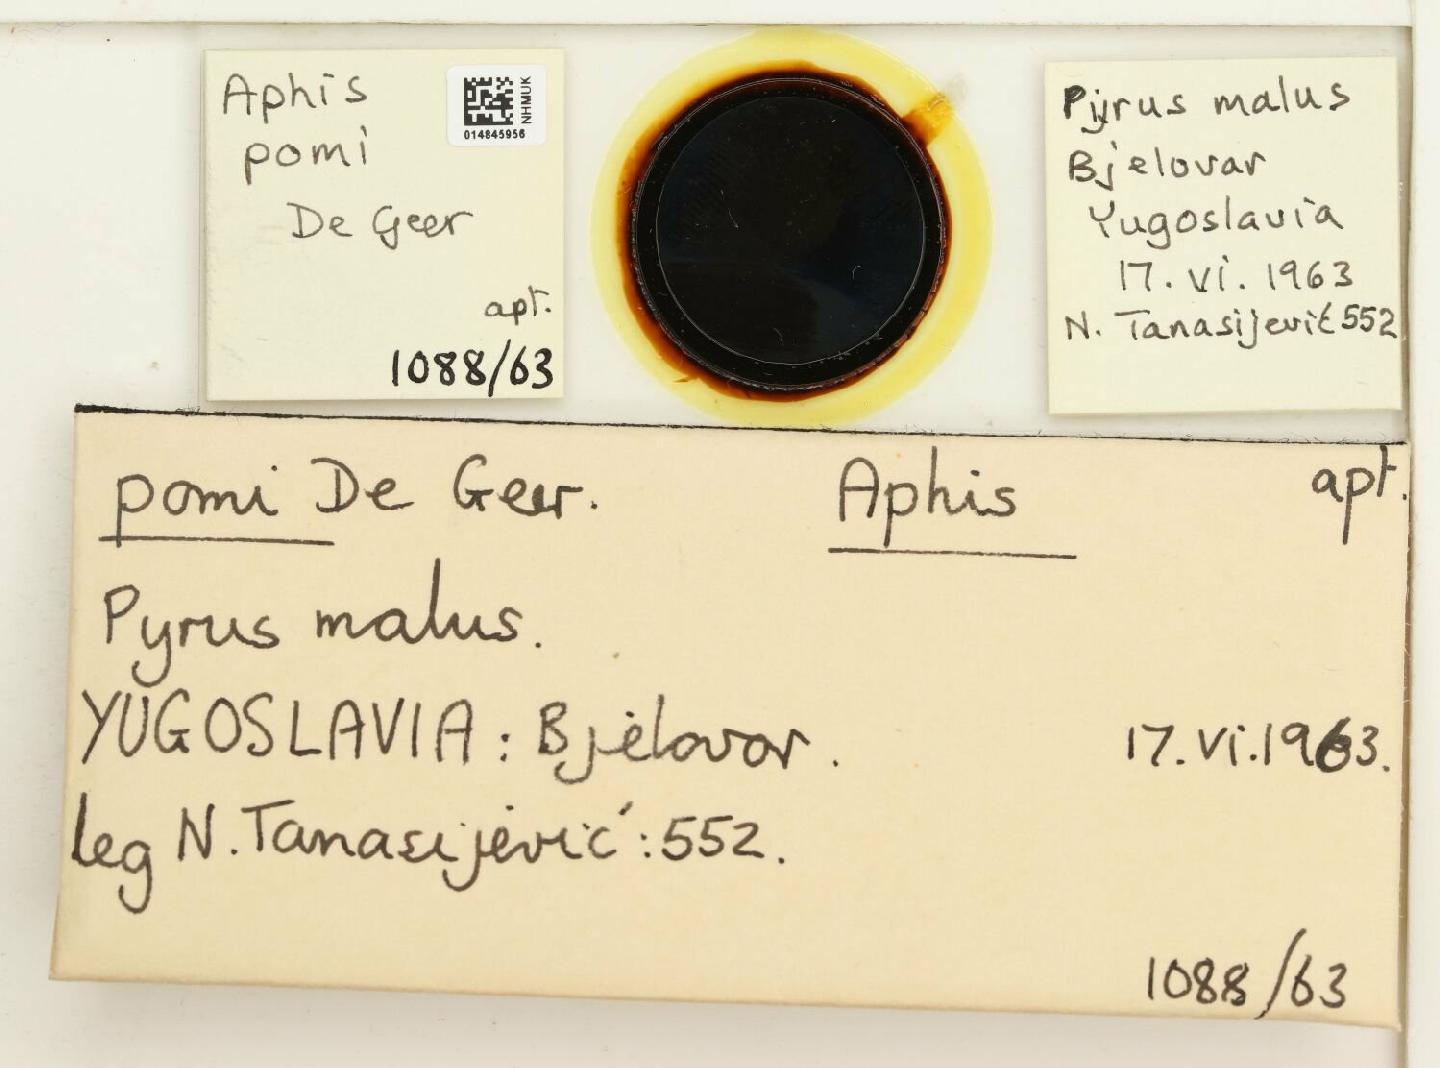 Aphis
pomi
De Geer
apt.
1088/63
NHMUK
014845956
Pyrus malus
Bjelovar
Yugoslavia
17.vi.1963
N. Tanasijević 552
pomi De Geer. Aphis apt.
Pyrus malus.
YUGOSLAVIA: Bjelovar. 17.vi.1963.
leg N. Tanasijević: 552.
1088/63